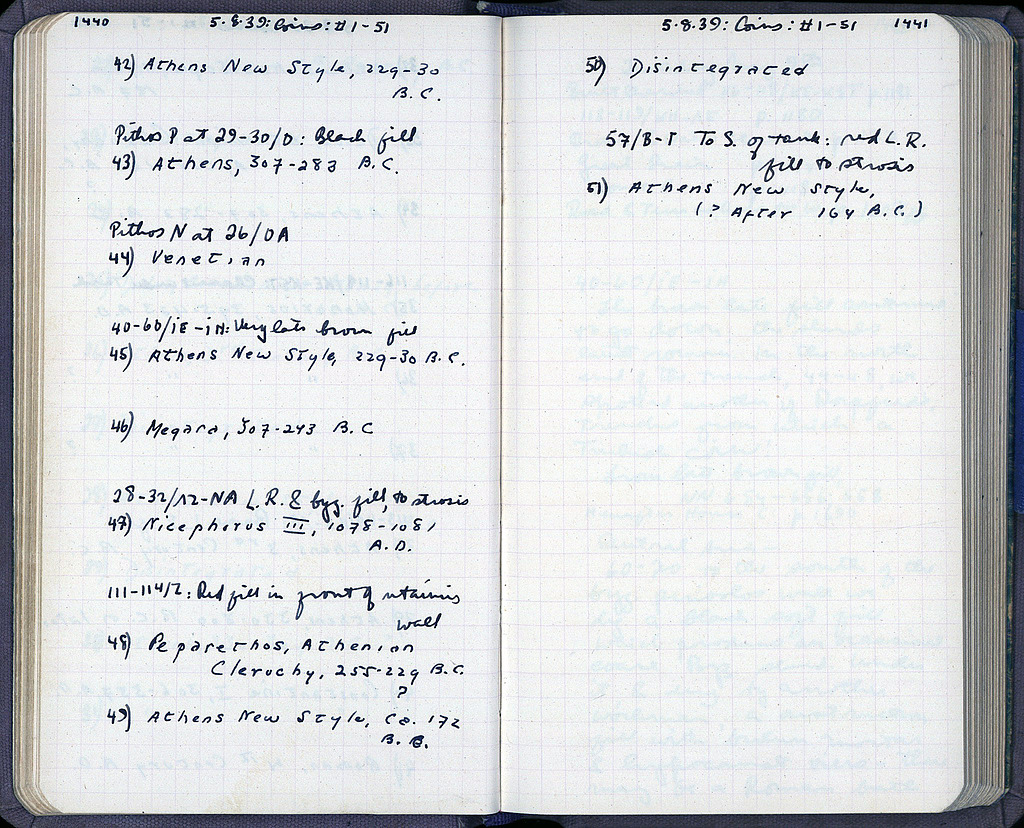 1440 5·8·39: Coins: #1-51
42) Athens New Style, 229-30
B.C.
Pithos P at 29-30/D: Black fill
43) Athens, 307-283 B.C.
Pithos N at 26/DA
44) Venetian
40-60/ΙΕ-ΙΗ: Very late brown fill
45) Athens New Style, 229-30 B.C.
46) Megara, 307-243 B.C
28-32/12-NA L.R. & byz. fill, to strosis
47) Nicephorus III, 1078-1081
A.D.
111-114/Z: Red fill in front of retaining
wall
48) Peparethos, Athenian
Cleruchy, 255-229 B.C.
?
49) Athens New Style, Ca. 172
B.B.
5·8·39: Coins: #1-51 1441
50) Disintegrated
57/B-Γ To S. of tank: red L.R.
fill to strosis
51) Athens New Style,
(? After 164 B.C.)